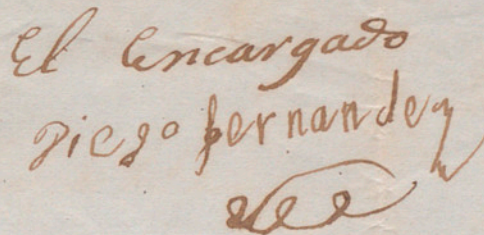 El Encargado
Diego Fernandez